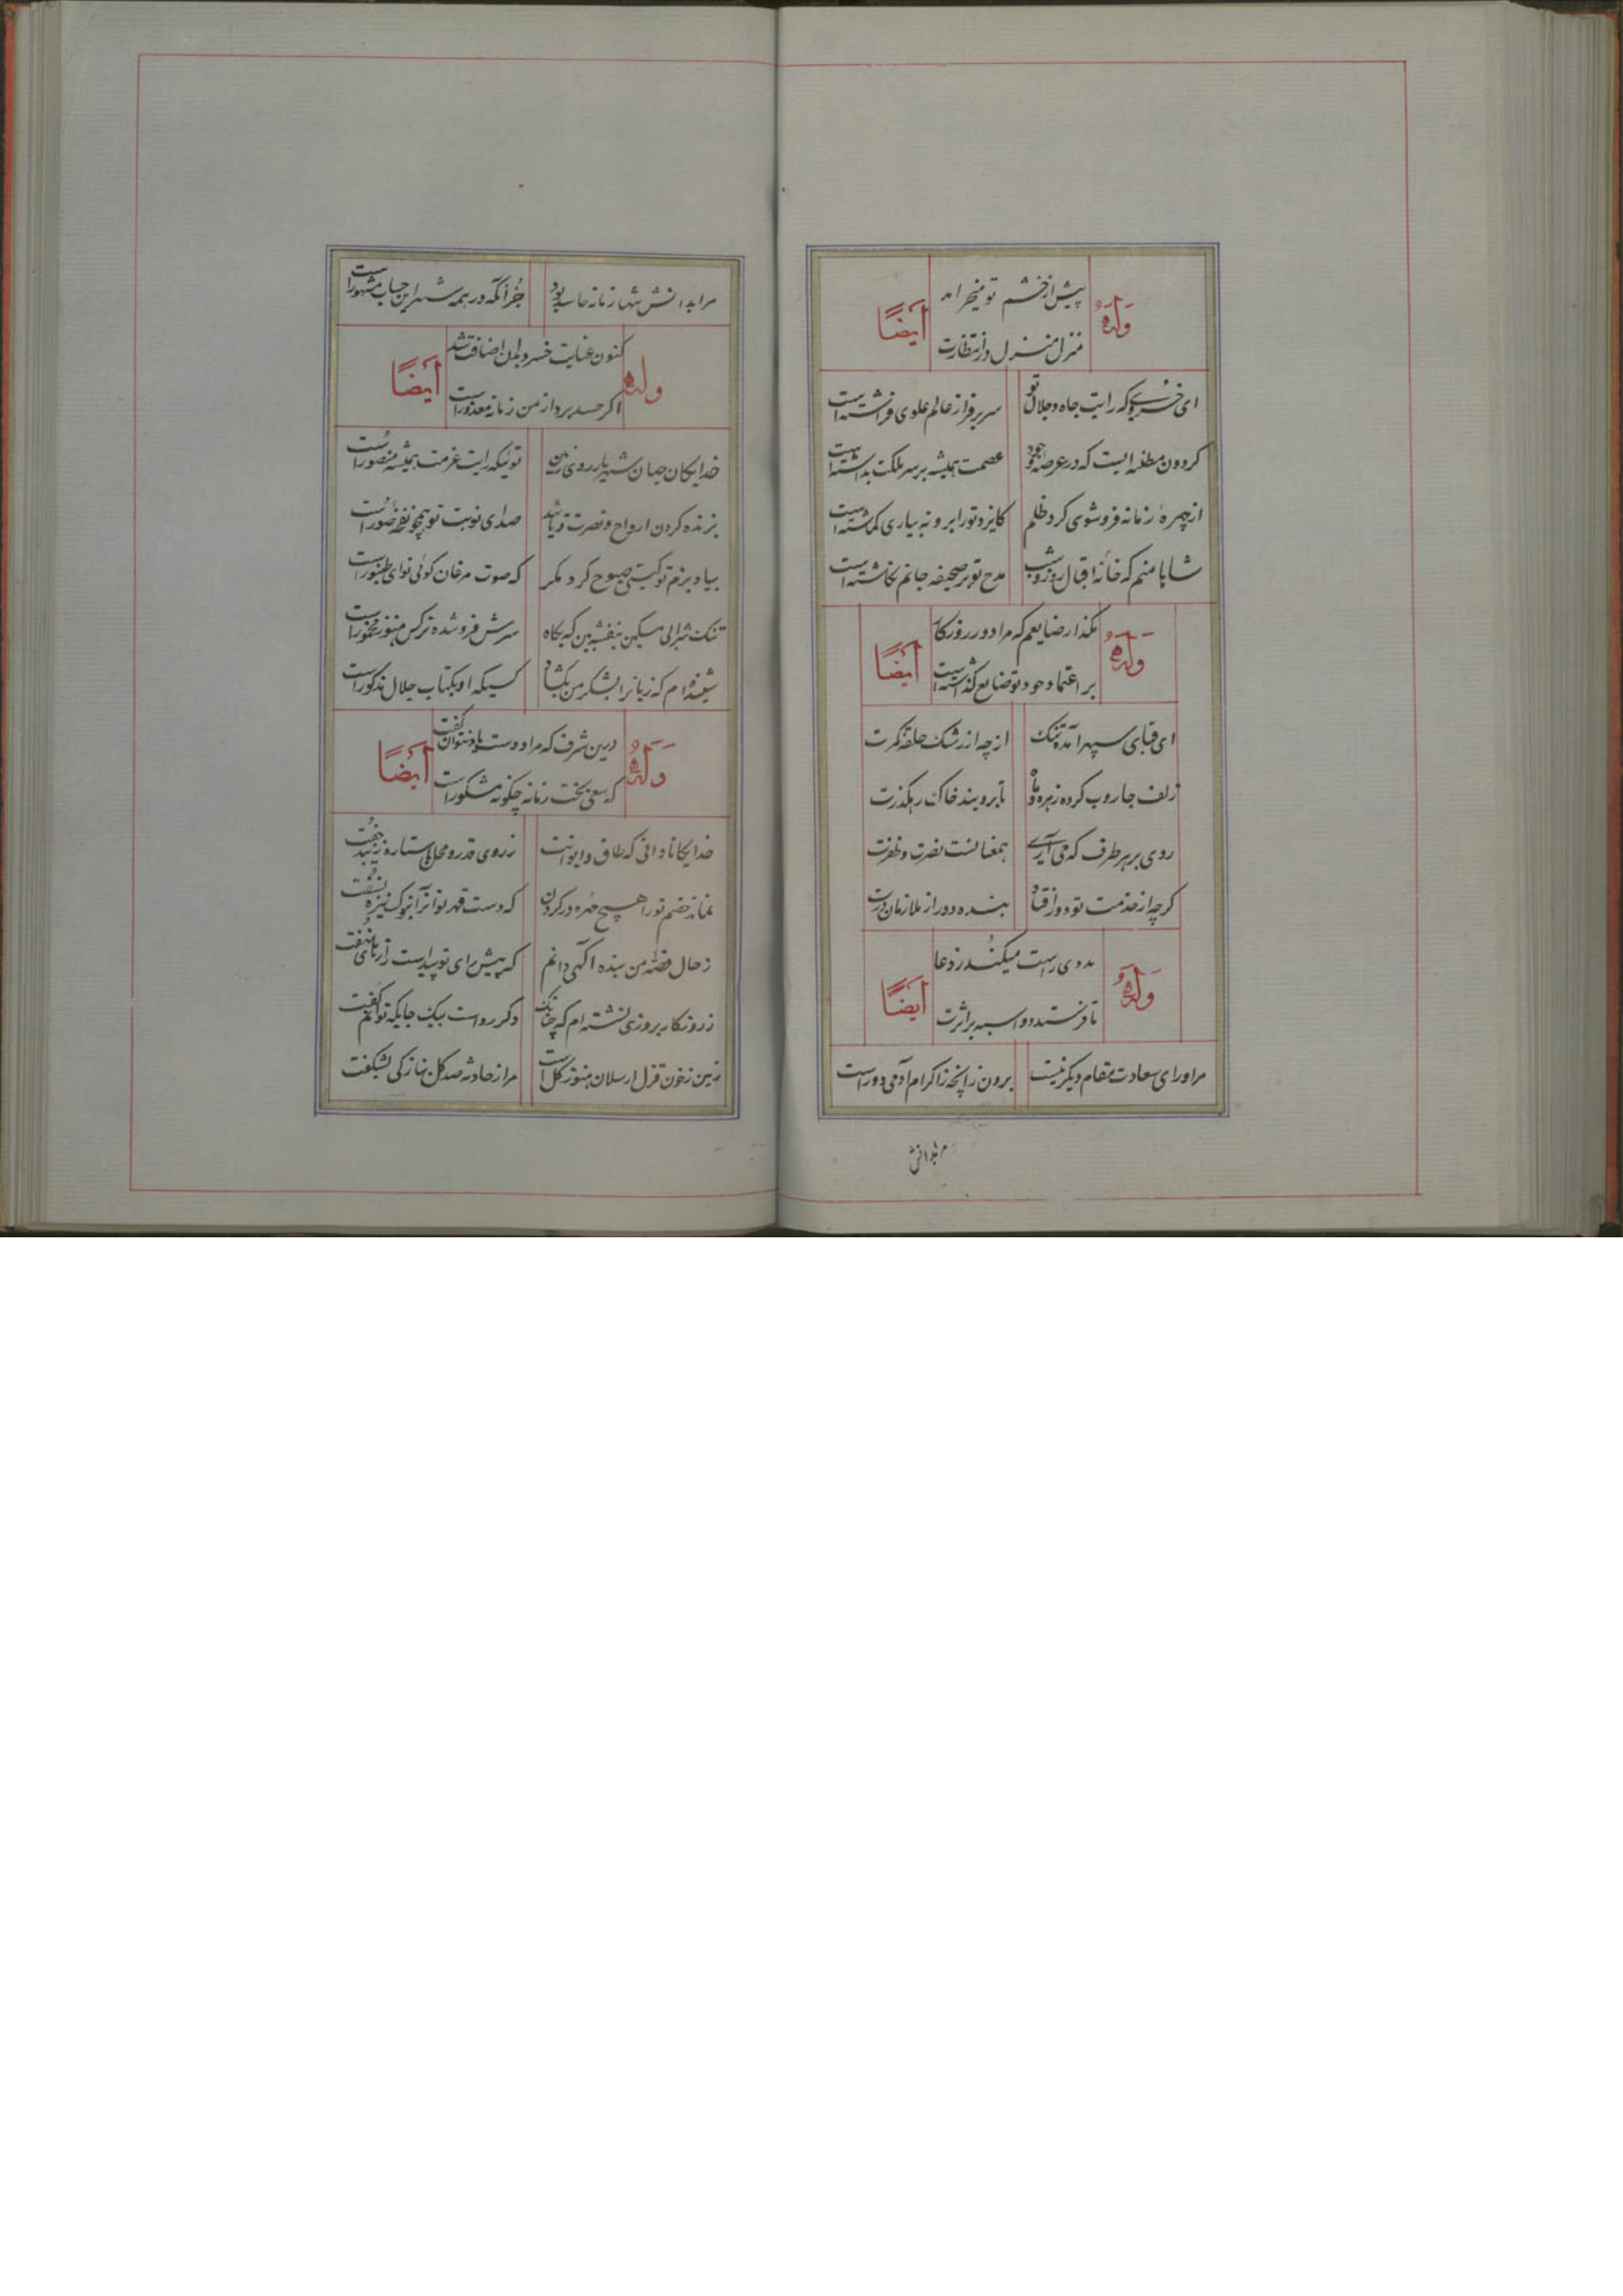 پیش از خشم تو میخرامد
وله ایضاً
منزل منزل در انتظارت
ای خسروی که رایت جاه و جلال تو سر بر فراز عالم علوی فراشته است
کردون مطلقه ایست که در عرصه وجود عصمت همیشه بر سر ملکت بداشته است
از چهرهٔ زمانه فروشوی کرد ظلم کایزد تو را برو نه بیاری کماشته است
شاها منم که خانهٔ اقبال روز و شب مدح تو بر صحیفه جانم نکاشته است
مکذار ضایعم که مرا دور روزکار
وله ایضاً
بر اعتماد جود تو ضایع کذاشته است
ای قبای سپهر آمده تنک از چه از رشک حلقه کمرت
زلف جاروب کرده زهره و ماه تا بروبند خاک رهکذرت
روی بر هر طرف که می آری همعنانست نصرت و ظفرت
کرچه از خدمت تو دور افتاد بنده دور از ملازمان درت
مددی راست میکند ز دعا
وله ایضاً
تا فرستد دو اسبه بر اثرت
مرا ورای سعادت مقام دیکر نیست برون ز آنچه ز اکرام آدمی دور است
مرا بدانش
مرا بدانش شها زمانه حاسد بود جُز آنکه در همه شهر این حساب مشهور است
کنون عنایت خسرو بدان اضافت شد
وله ایضاً
اکر حسد برد از من زمانه معذور است
خدایکان جهان شهریار روی زمین توئیکه رایت عزمت همیشه منصور است
بزنده کردن ارواح و نصرت صدای نوبت تو همچو نفخهٔ صور است
بیاد بزم تو کیتی صبوح کرد مکر که صوت مرغان کوئی نوای طنبور است
تنک شرابی مسکین بنفشه بین که پکاه سرش فرو شده نرکس هنوز مخمور است
شنیده ام که زبانرا بشکر من بکشاد کسیکه او بکتاب جلال مذکور است
درین شرف که مرا دست داد نتوان کفت
وله ایضاً
که سعی بخت زمانه چکونه مشکور است
خدایکانا دانی که طاق و ایوانت ز روی قدر و محل با ستاره زیبد جفت
نماند خصم تو را هیچ مُهره در کردن که دست قهر تو آنرا بنوک نیزه نسُفت
ز حال قصّهٔ من بنده آکهی دانم که پیش رای تو پیداست رازهای نهفت
ز روزکار بروزی نشسته ام که چنانک دکر رواست بیک جایکه توانم کفت
زمین ز خون قزل ارسلان هنوز کل است مرا ز حادثه صد کل بتازکی بشکفت